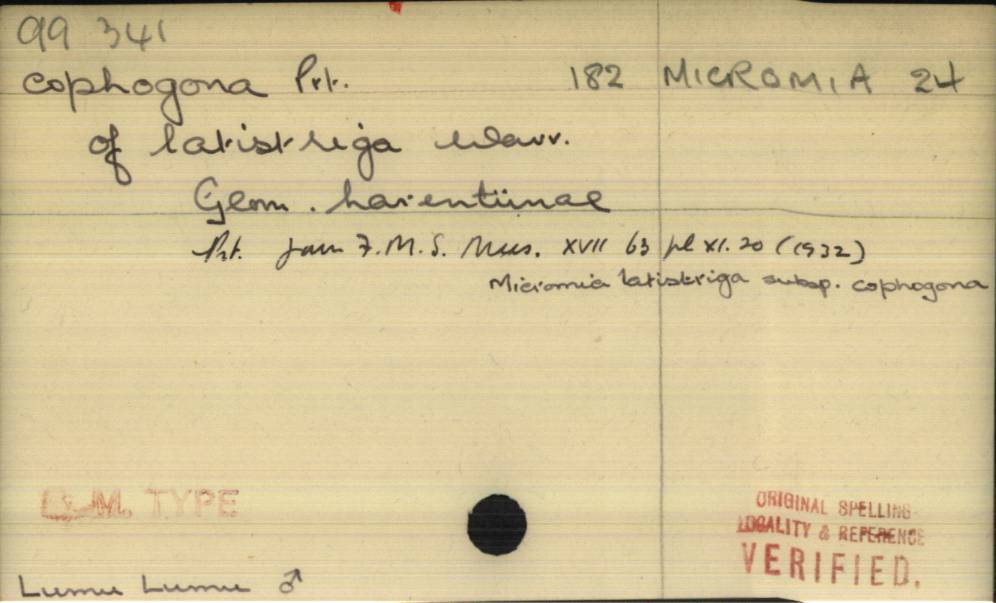 99 341
cophogona Prt. 182 MICROMIA 24
of latistriga Warr.
Geom. larentiinae
Prt. Jour F.M.S. Mus. XVII 63 pl XI. 20 (1932)
Micromia latistriga subsp. cophogona
B.M. TYPE
ORIGINAL SPELLING
LOCALITY & REFERENCE
VERIFIED.
Lumu Lumu ♂